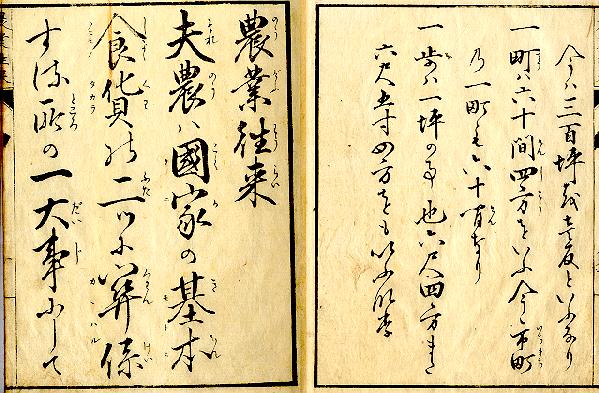 今ハ三百坪を壱反といふなり
一町ハ六十間四方をいふ今市町
乃一町も六十間なり
一歩ハ一坪の事也六尺四方また
六尺五寸四方をもいふ
農業往来
夫農ハ國家の基本
食貨の二ツに関係
する所の一大事にして